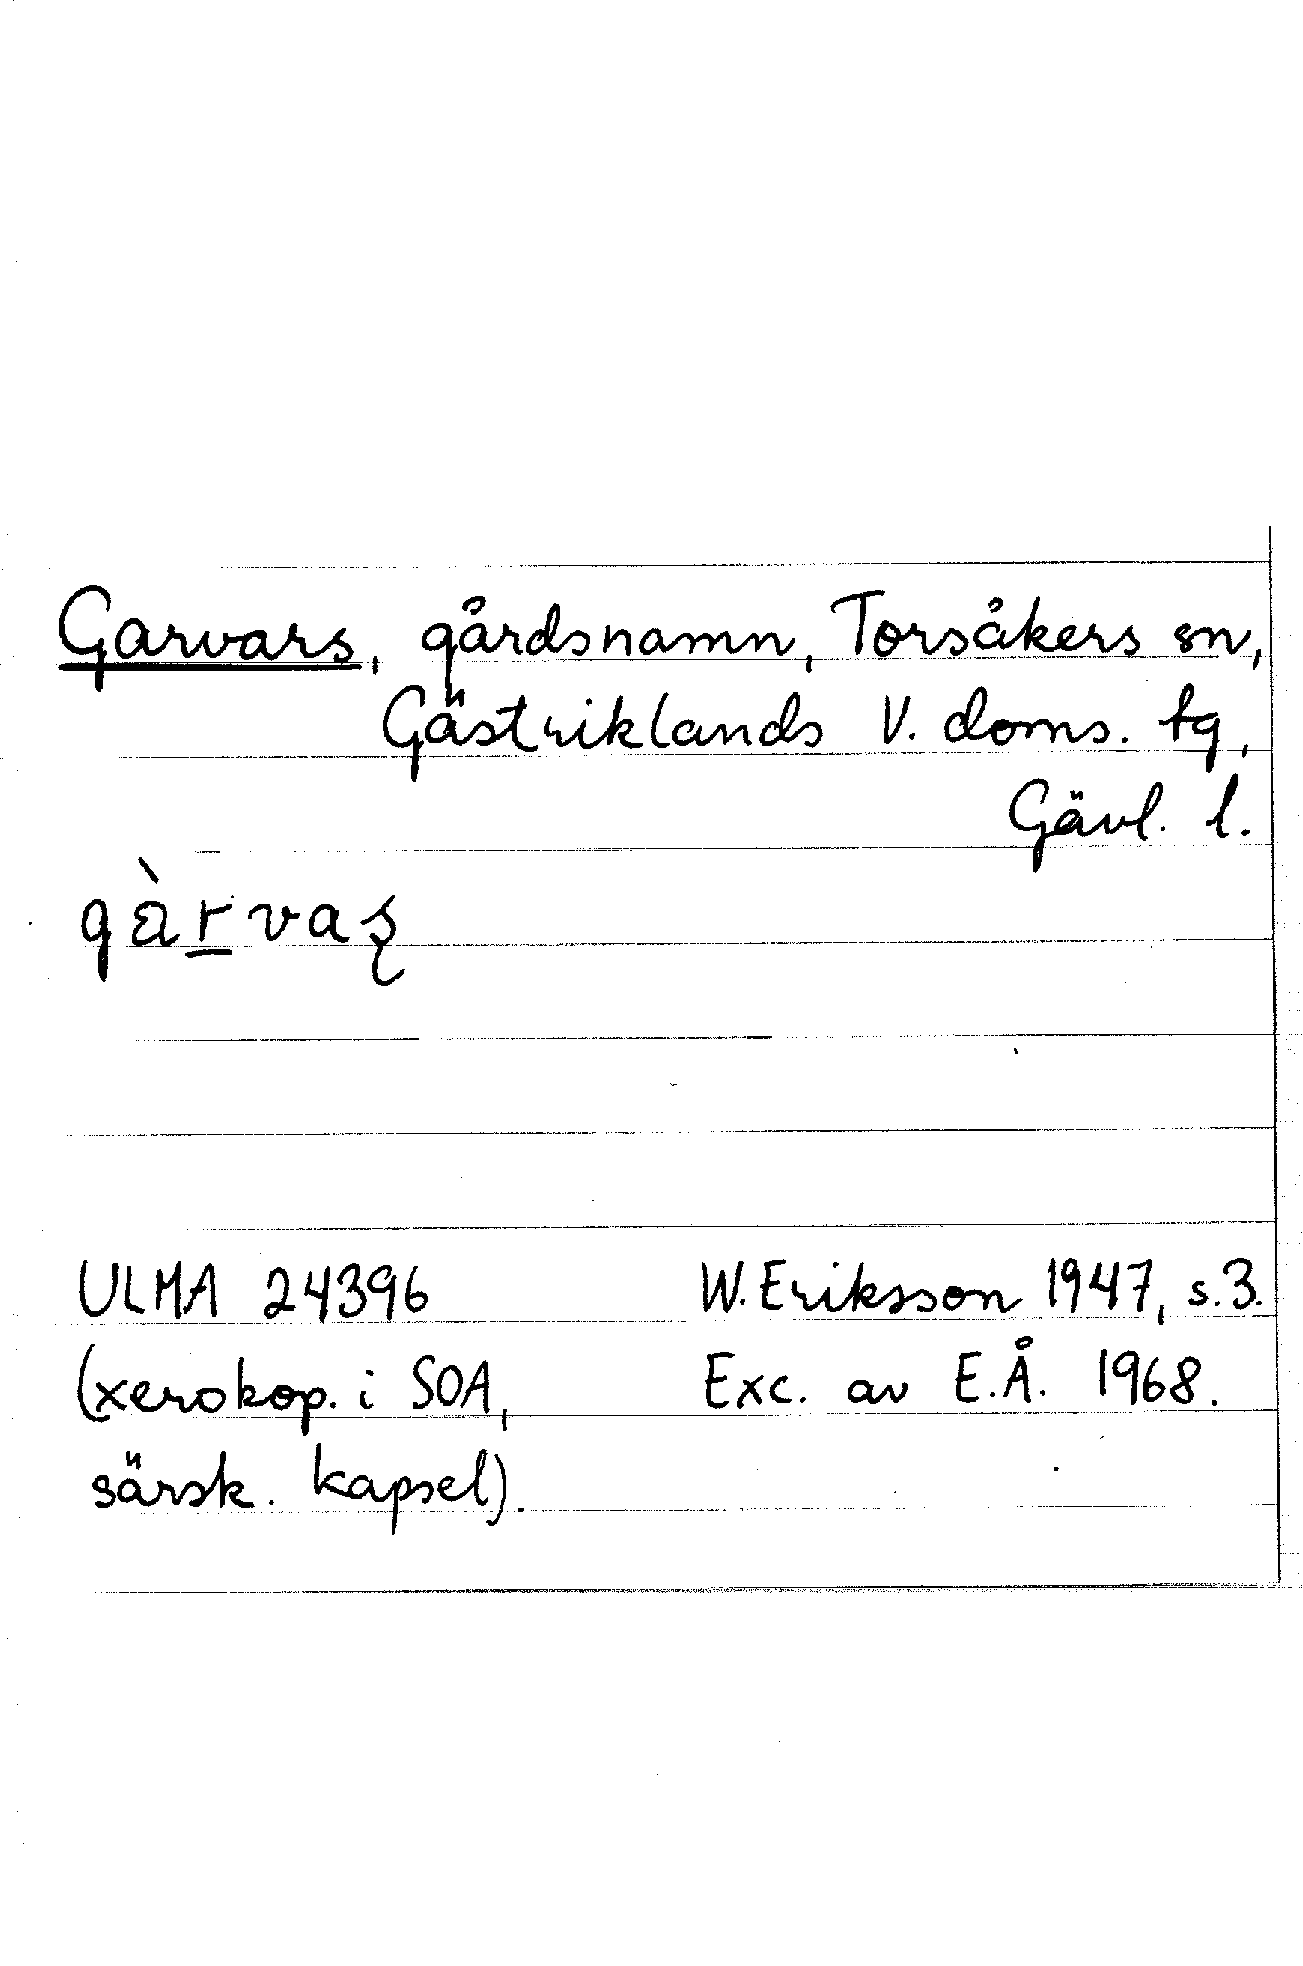 Garvars, gårdsnamn, Torsåkers sn,
Gästriklands V. doms. tg,
Gävl. l.
gàr̲vaş
ULMA 24396 W. Eriksson 1947, s. 3.
(xerokop. i SOA, Exc. av E.Å. 1968.
särsk. kapsel).